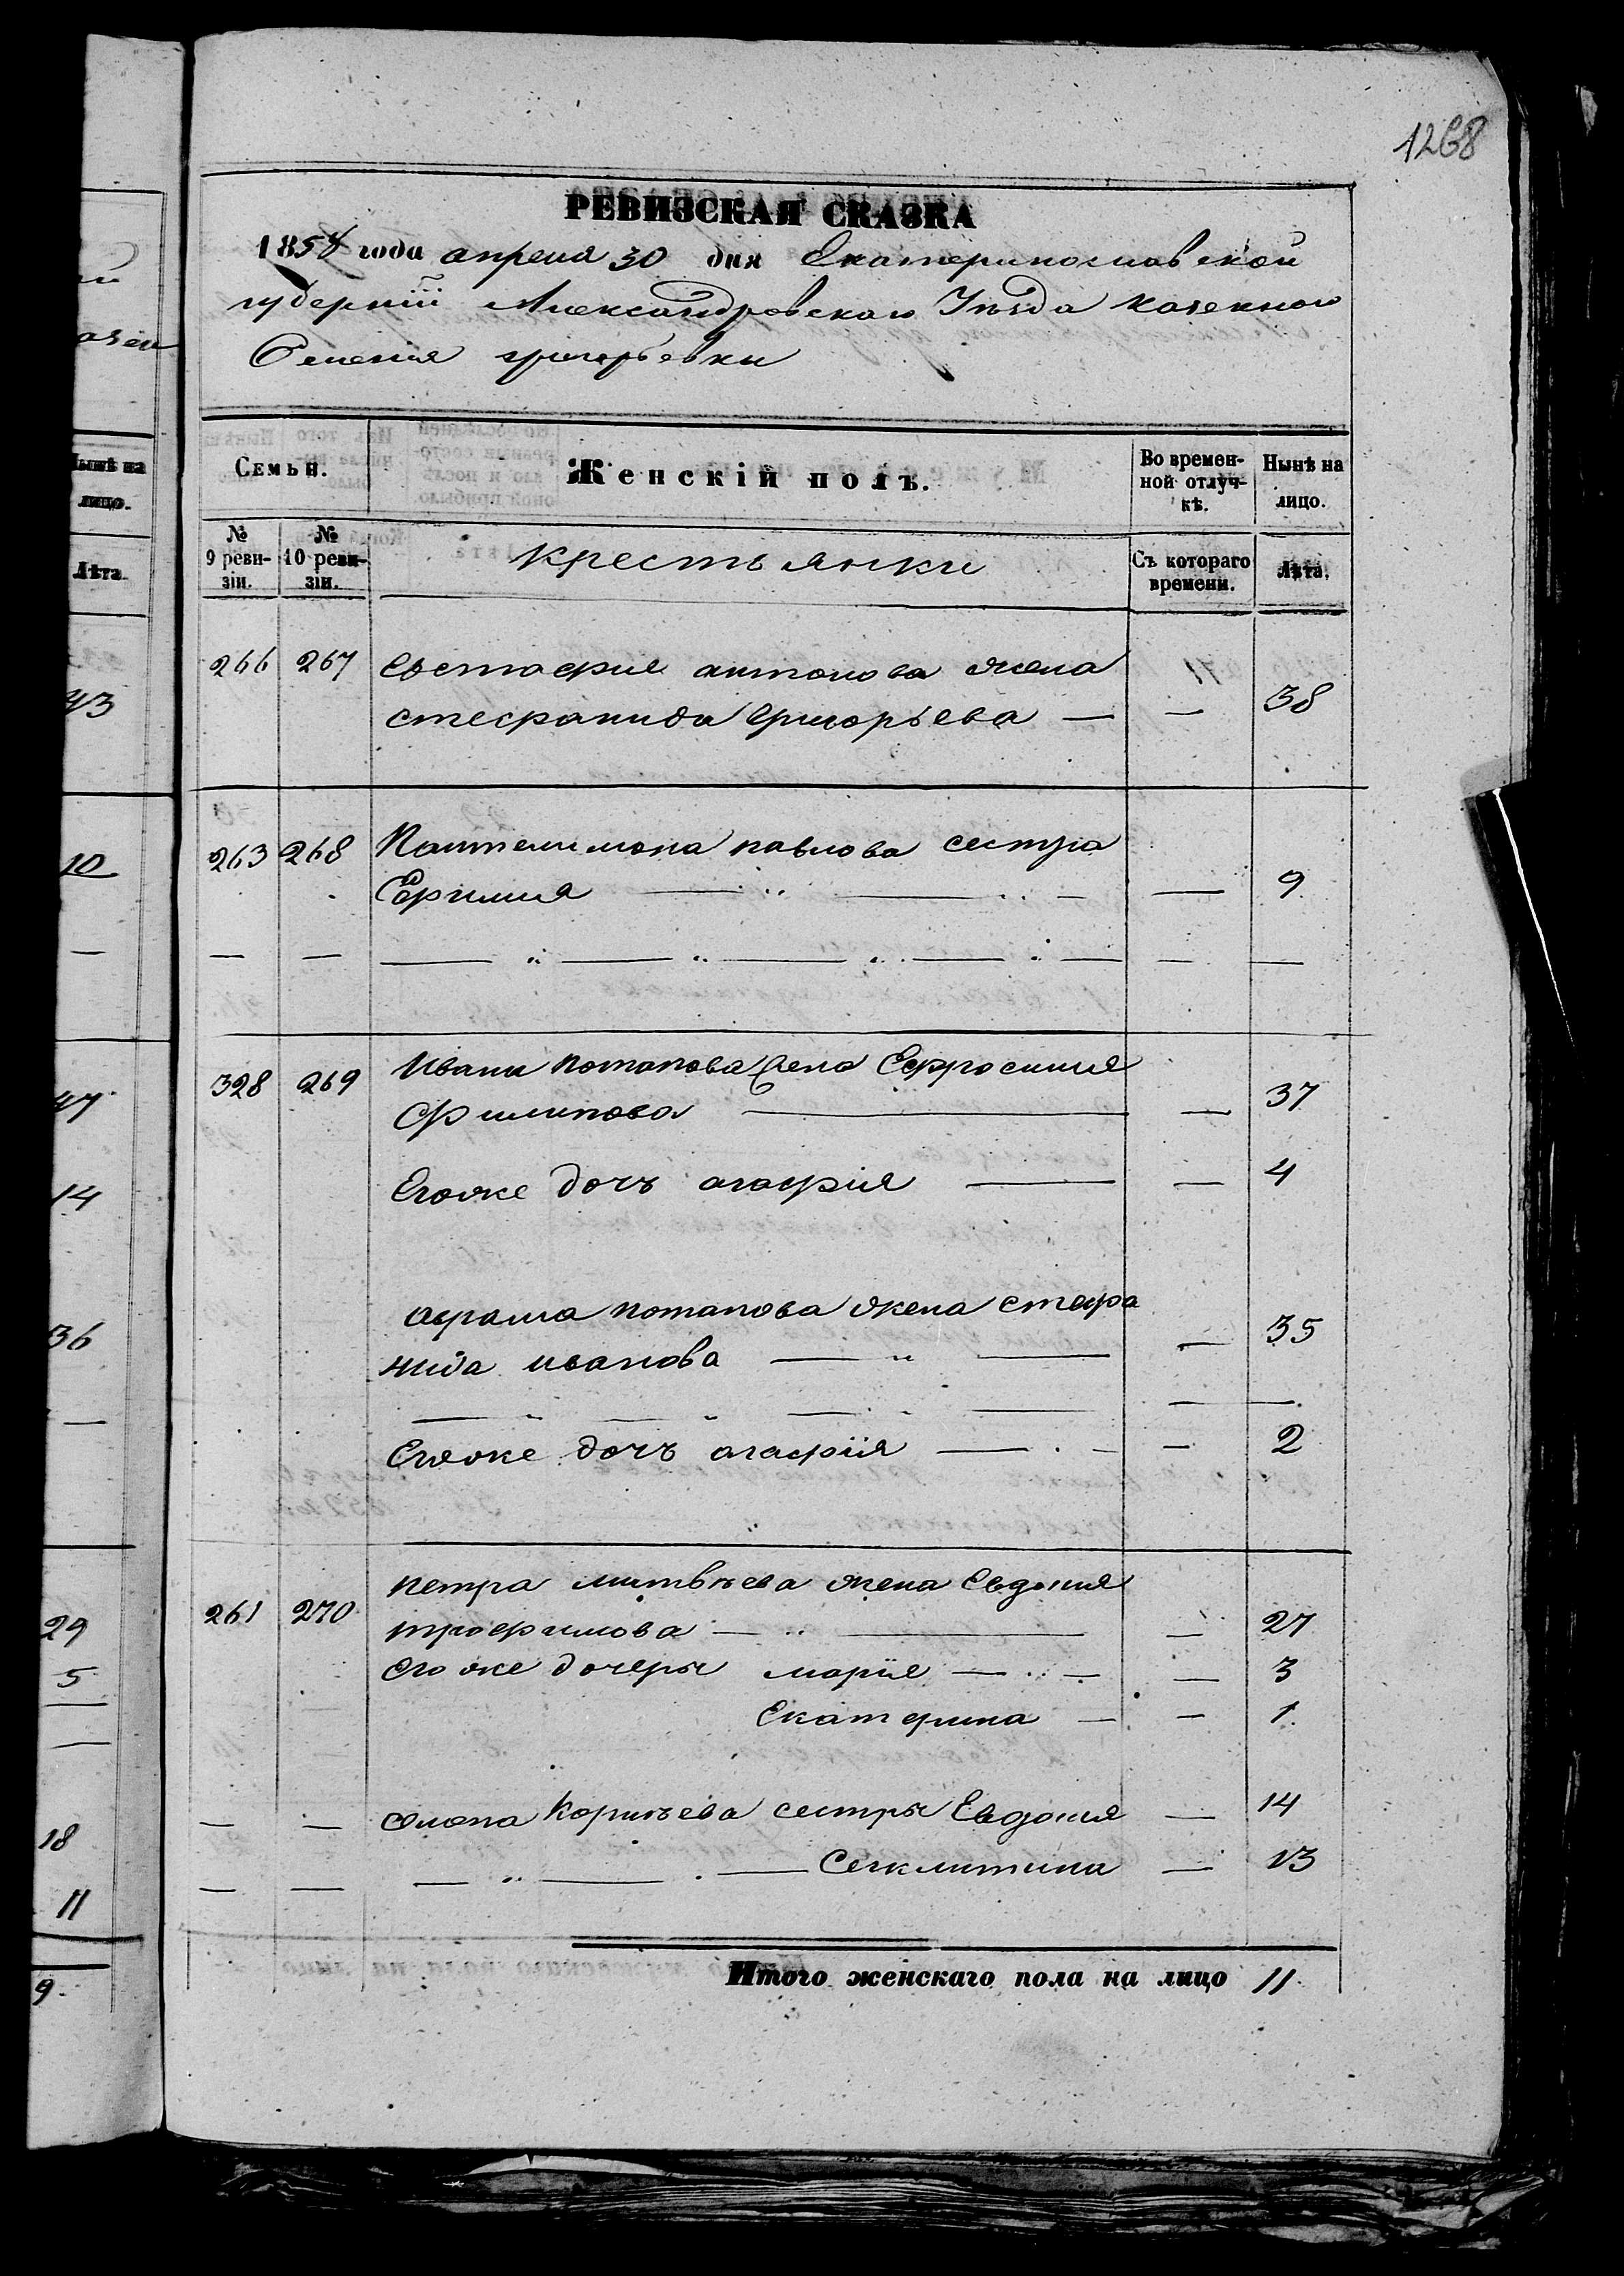 1268
РЕВИЗСКАЯ СКАЗКА
1858 года апреля 30 дня Екатеринославской
губерніи Александровскаго Уѣзда казенного
Селенія григорьевки
Семьи.
Женскій полъ.
Во времен-
ной отлуч-
кѣ.
Нынѣ на
лицо.
№
9 реви-
зіи.
№
10 реви-
зіи.
крестьянки
Съ котораго
времени.
Лѣта.
266 267 Евстафия антонова жена
стефанида григорьева — — 38
263 268 Пантелимона павлова сестра
Ефимия — — 9
328 269 Ивана потапова жена Ефросиния
Филипова — — 37
Егоже дочъ агафія — — 4
афрама потапова жена стефа
нида иванова — — 35
Егоже дочъ агафія — — 2
261 270 петра митвѣева жена Евдокия
трофимова — — 27
Егоже дочеры марие — — 3
Екатерина — — 1
— — Корнѣева сестры Евдокия — 14
— — — — 13
Итого женскаго пола на лицо 11
Нынѣ на
лицо.
Лѣта.
43
10
—
47
14
36
—
29
5
18
11
9